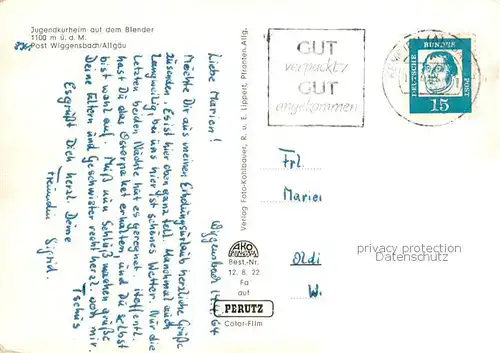 Jugendkurheim auf dem Blender
1100 m ü. d. M.
8961 Post Wiggensbach/Allgäu
Wiggensbach 14.4.64
Liebe Marien!
Möchte Dir aus meinen Erholungsurlaub herzliche Grüße
zusenden. Es ist hier oben ganz toll. Manchmal auch
langweilig, bei uns hier ist schönes Wetter. Nur die
letzten beiden Nächte hat es geregnet. Hoffentl.
hast Du das Osterpaket erhalten, und Du selbst
bist wohl auf. Muß nun Schluß machen grüße
Deine Eltern und Geschwister recht herzl. von mir.
Es grüßt Dich herzl. Deine Tschüs
Freundin Sigrid.
Verlag Foto-Kohlbauer, R. u. E. Lippert, Pfronten Allg.
AKO
Best.-Nr.
12. 8. 22
Fa
auf
PERUTZ
Color-Film
GUT
verpackt,
GUT
angekommen
DEUTSCHE
BUNDES
POST
15
Frl
Marien
Oldi
W.
privacy protection
Datenschutz